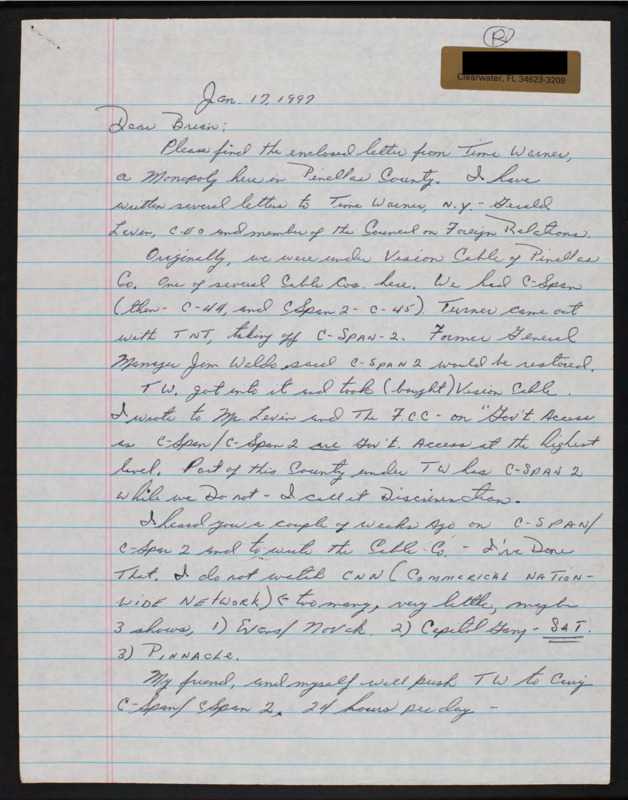 R
Clearwater, FL 34623-3208
Jan. 17, 1997
Dear Brian:
Please find the enclosed letter from Time Warner,
a Monopoly here in Pinellas County. I have
written several letters to Time Warner, N.Y. - Gerald
Levin, CEO and member of the Council on Foreign Relations.
Originally, we were under Vision Cable of Pinellas
Co. One of several Cable Cos. here. We had C-Span
(then - C-44, and CSpan 2 - C-45). Turner came out
with TNT, taking off C-SPAN-2. Former General
Manager Jim Waldo said C-SPAN 2 would be restored.
T W. got into it and took (bought) Vision Cable.
I wrote to Mr. Levin and The F.C.C - on "Gov't. Access
as C-Span/C-Span 2 are Gov't. Access at the highest
level. Part of this County under TW has C-SPAN 2
while we Do not - I call it Discrimination.
I heard you a couple of weeks ago on C-SPAN/
C-Span 2 and to write the Cable Co. - I've Done
That. I do not watch CNN (COMMERICAL NATION-
WIDE NETWORK) too many, very little, maybe
3 shows, 1) Evans/Novak 2) Capitol Gang - SAT.
3) PINNACLE.
My friend, and myself will push TW to Carry
C-Span/CSpan 2, 24 hours per day -